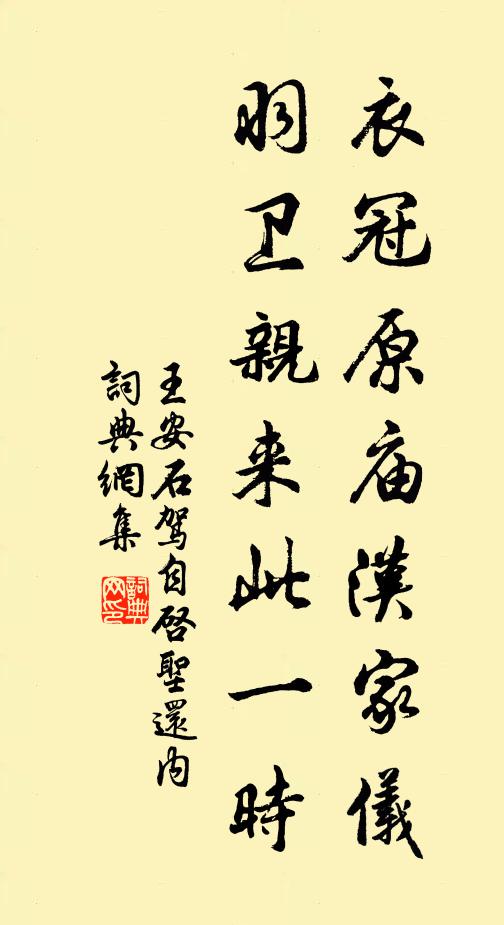 衣冠原庙漢家儀
羽卫親来此一時
王安石駕自启聖還内
詞典網集
詞典网印